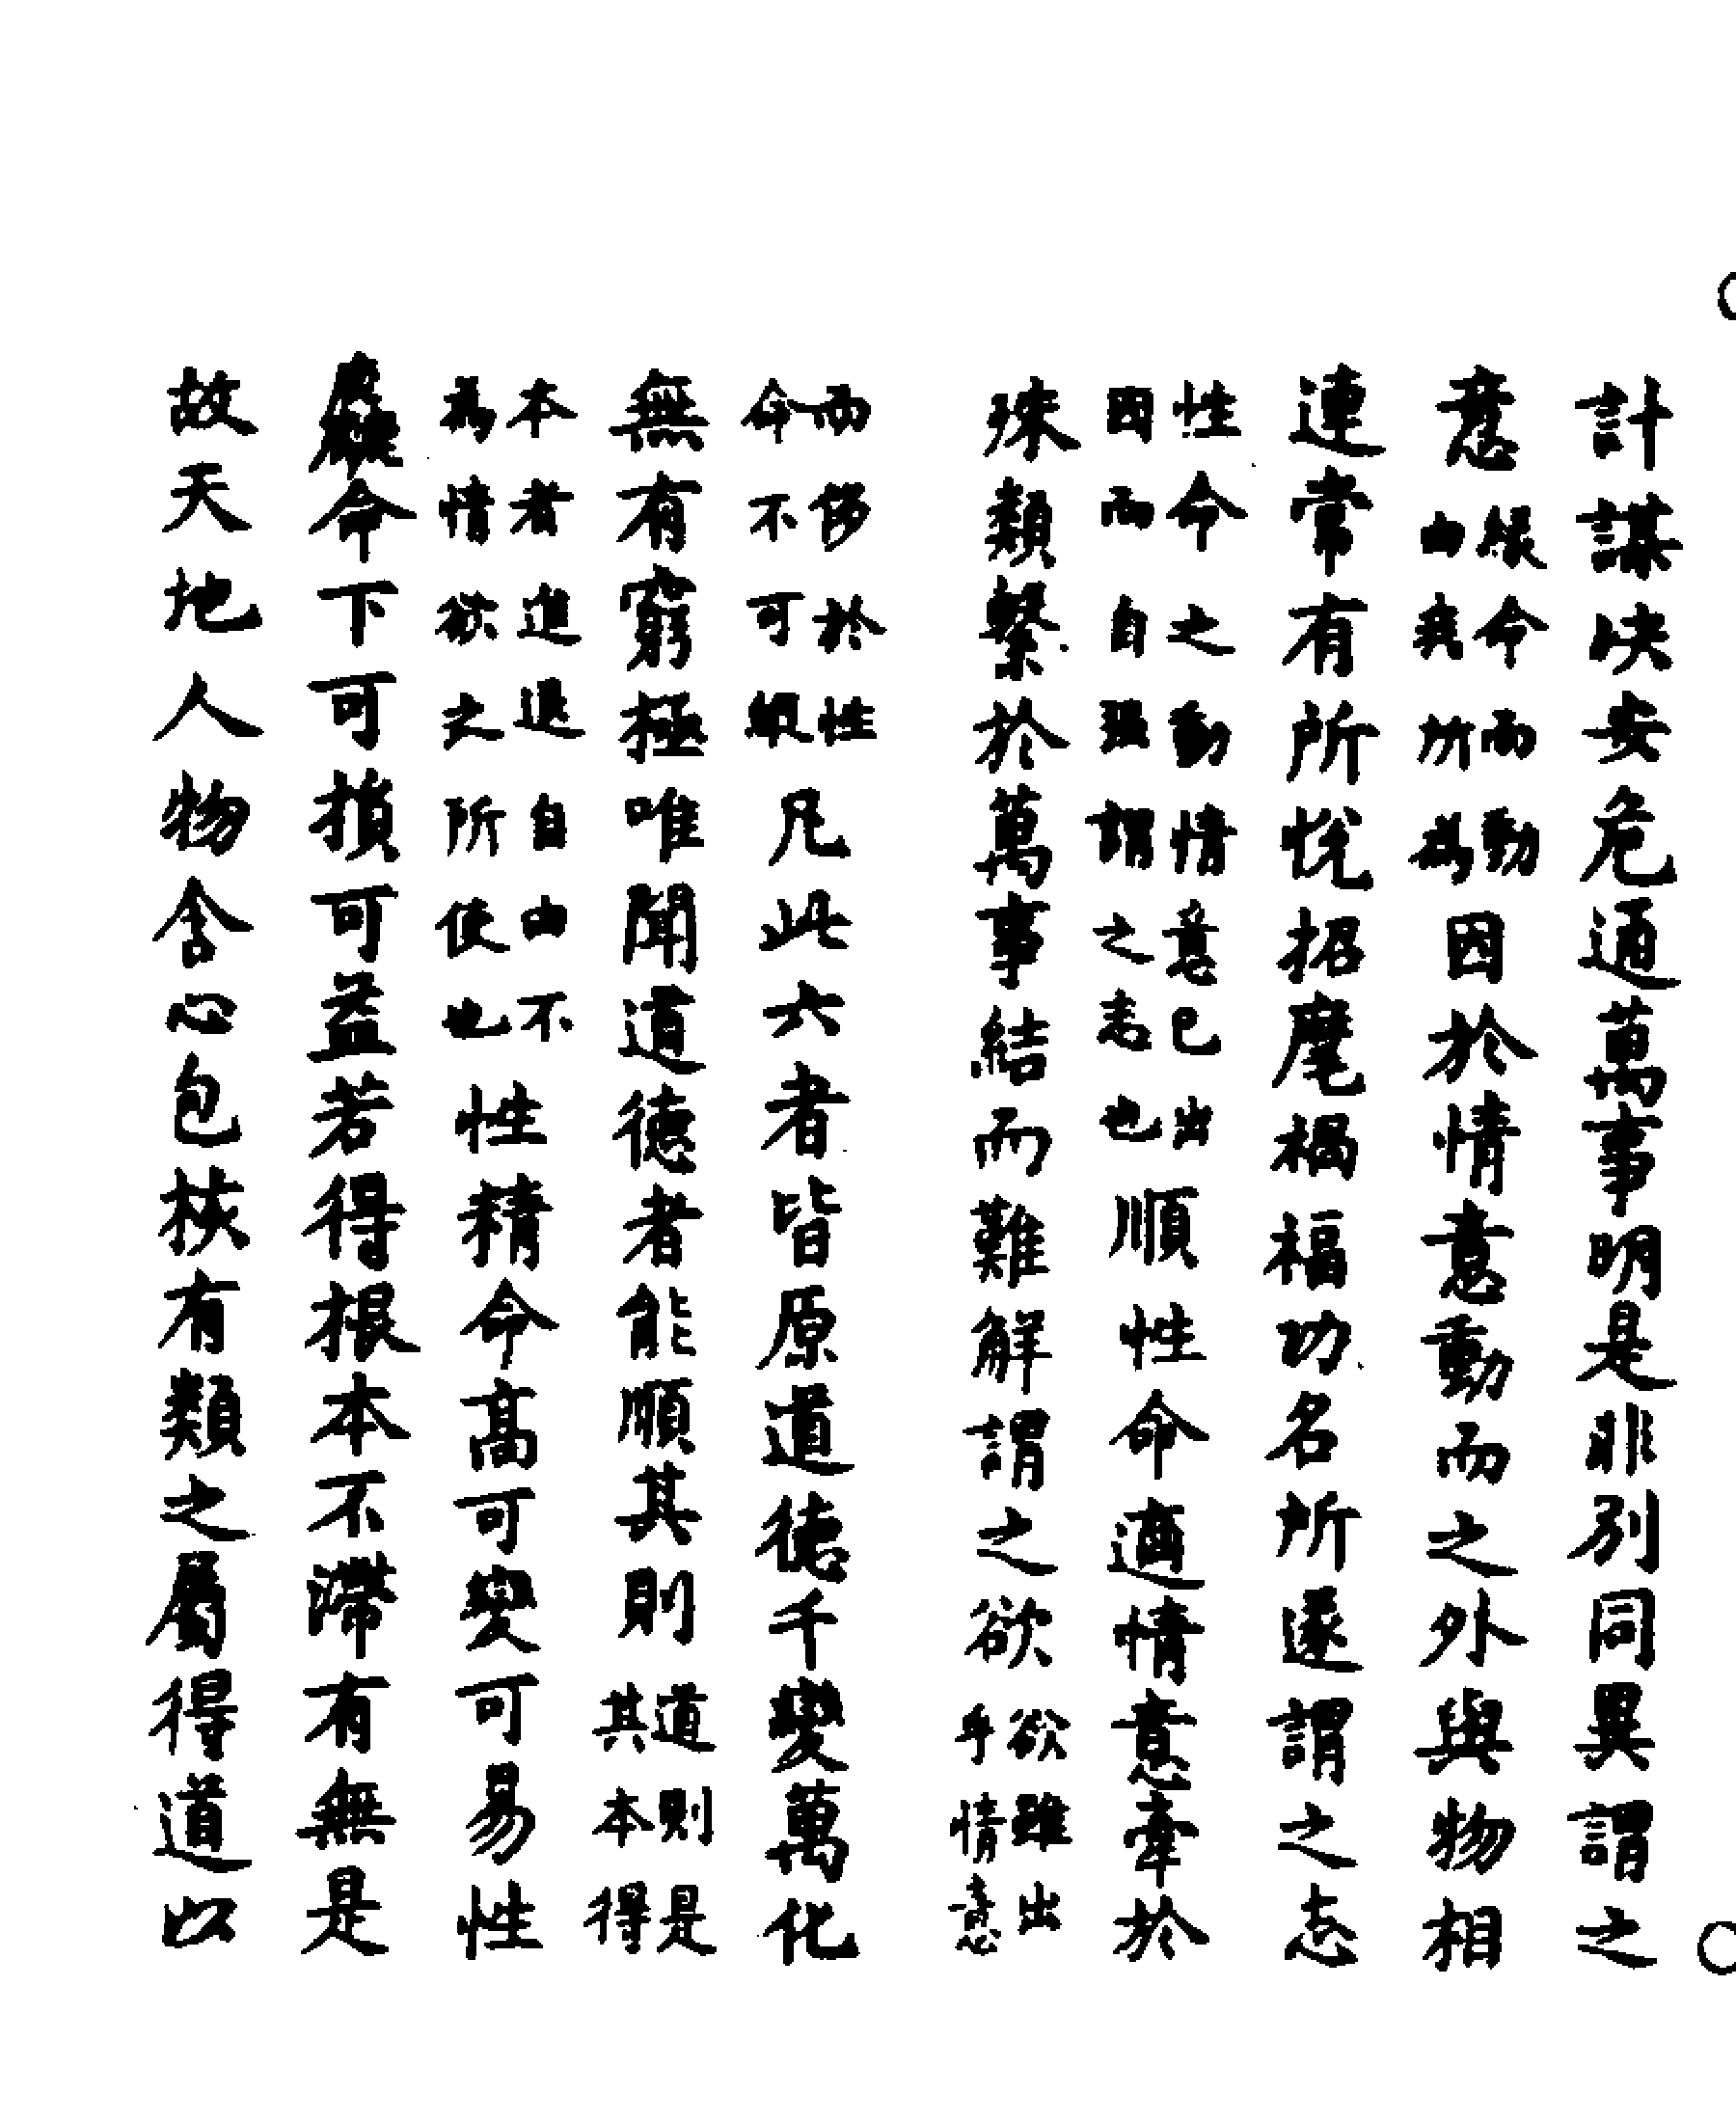 計謀决安危通萬事明是非別同異謂之
意緣命而動由我所為因於情意動而之外與物相
連常有所悅招麾禍福功名所遂謂之志
性命之動情意已出因而自强謂之志也順性命適情意牽於
殊類繫於萬事結而難解謂之欲欲雖出乎情意
而於性命不可縱凡此六者皆原道德千變萬化
無有窮極唯聞道德者能順其則道則是其本得
本者進退自由不為情欲之所使也性精命高可變可易性
麤命下可損可益若得根本不滯有無是
故天地人物含心包核有類之屬得道以